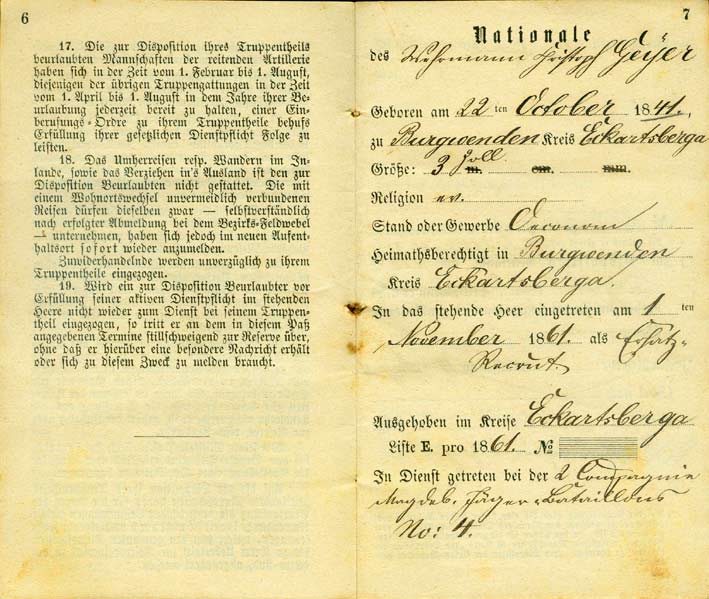 6
17. Die zur Disposition ihres Truppentheils
beurlaubten Mannschaften der reitenden Artillerie
haben sich in der Zeit vom 1. Februar bis 1. August,
diejenigen der übrigen Truppengattungen in der Zeit
vom 1. April bis 1. August in dem Jahre ihrer Be-
urlaubung jederzeit bereit zu halten, einer Ein-
berufungs-Ordre zu ihrem Truppentheile behufs
Erfüllung ihrer gesetzlichen Dienstpflicht Folge zu
leisten.
18. Das Umherreisen resp. Wandern im In-
lande, sowie das Verziehen in's Ausland ist den zur
Disposition Beurlaubten nicht gestattet. Die mit
einem Wohnortswechsel unvermeidlich verbundenen
Reisen dürfen dieselben zwar — selbstverständlich
nach erfolgter Abmeldung bei dem Bezirks-Feldwebel
— unternehmen, haben sich jedoch im neuen Aufent-
haltsort sofort wieder anzumelden.
Zuwiderhandelnde werden unverzüglich zu ihrem
Truppentheile eingezogen.
19. Wird ein zur Disposition Beurlaubter vor
Erfüllung seiner aktiven Dienstpflicht im stehenden
Heere nicht wieder zum Dienst bei seinem Truppen-
theil eingezogen, so tritt er an dem in diesem Paß
angegebenen Termine stillschweigend zur Reserve über,
ohne daß er hierüber eine besondere Nachricht erhält
oder sich zu diesem Zweck zu melden braucht.
7
Nationale
des Wehrmann Christoph Geyer
Geboren am 22 ten October 1841.,
zu Burgwenden Kreis Eckartsberga
Größe: 3 Zoll m. cm. mm.
Religion ev.
Stand oder Gewerbe Oeconom
Heimathsberechtigt in Burgwenden
Kreis Eckartsberga.
In das stehende Heer eingetreten am 1 ten
November 1861 als Ersatz-
Recrut.
Ausgehoben im Kreise Eckartsberga
Liste E. pro 1861. №
In Dienst getreten bei der 2 Compagnie
Magdeb. Jäger-Bataillons
No: 4.